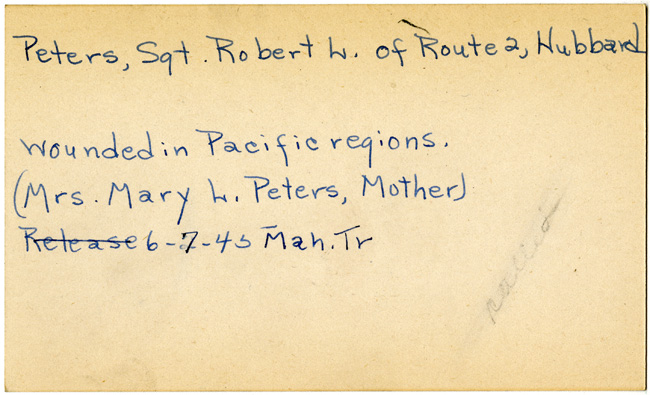 Peters, Sgt. Robert L. of Route 2, Hubbard
wounded in Pacific regions.
(Mrs. Mary L. Peters, Mother)
Release 6-7-45 Mah. Tr